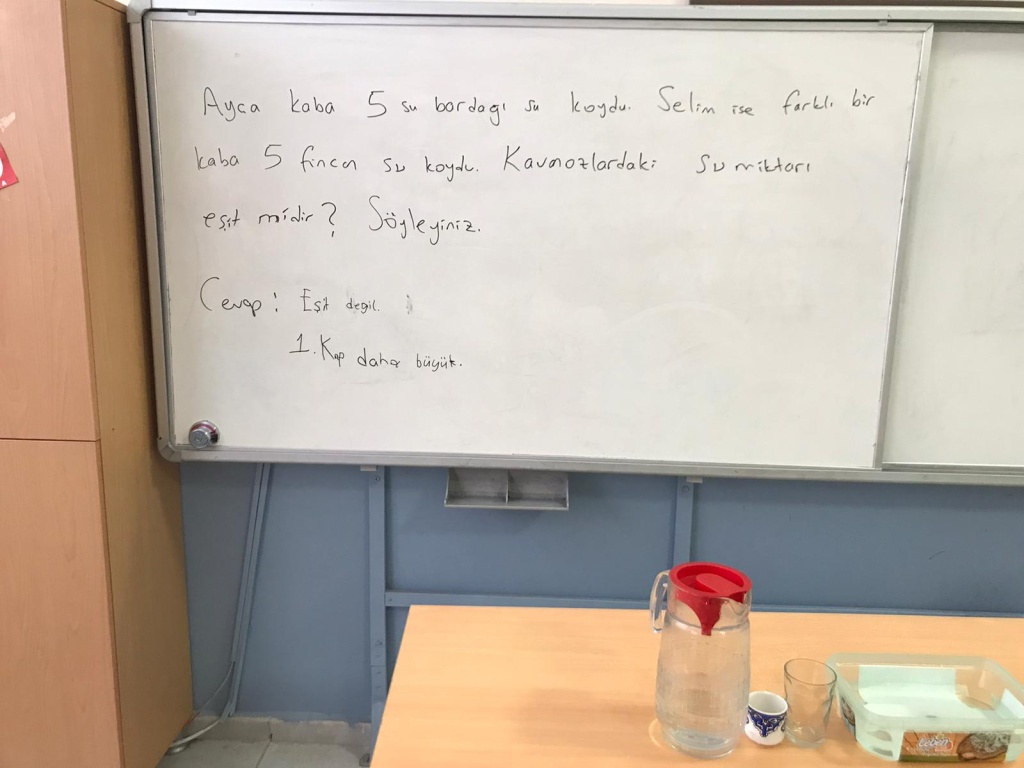 Ayca kaba 5 su bardağı su koydu. Selim ise farklı bir
kaba 5 fincan su koydu. Kavanozlardaki su miktarı
eşit midir? Söyleyiniz.
Cevap: Eşit değil.
1. Kap daha büyük.
eeben